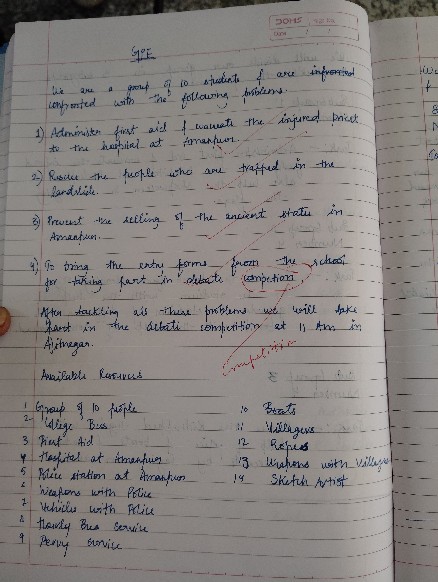 DOMS
Date
GPE
We are a group of 10 students & are infronted
confronted with the following problems.
1) Administer first aid & evacuate the injured priest
to the hospital at Amanpur.
2) Rescue the people who are trapped in the
landslide.
3) Prevent the selling of the ancient statue in
Amanpur.
4) To bring the entry forms from the school
for taking part in debate competion
After tackling all these problems we will take
part in the debate competition at 11 Am in
Ajitnagar.
competition
Available Resources
1 Group of 10 people
2 College Bus
3 First Aid
4 Hospital at Amanpur
5 Police station at Amanpur
6 Weapons with Police
7 Vehicle with Police
8 Hourly Bus Service
9 Ferry service
10 Boats
11 Villagers
12 Ropes
13 Weapons with Villagers
14 Sketch Artist